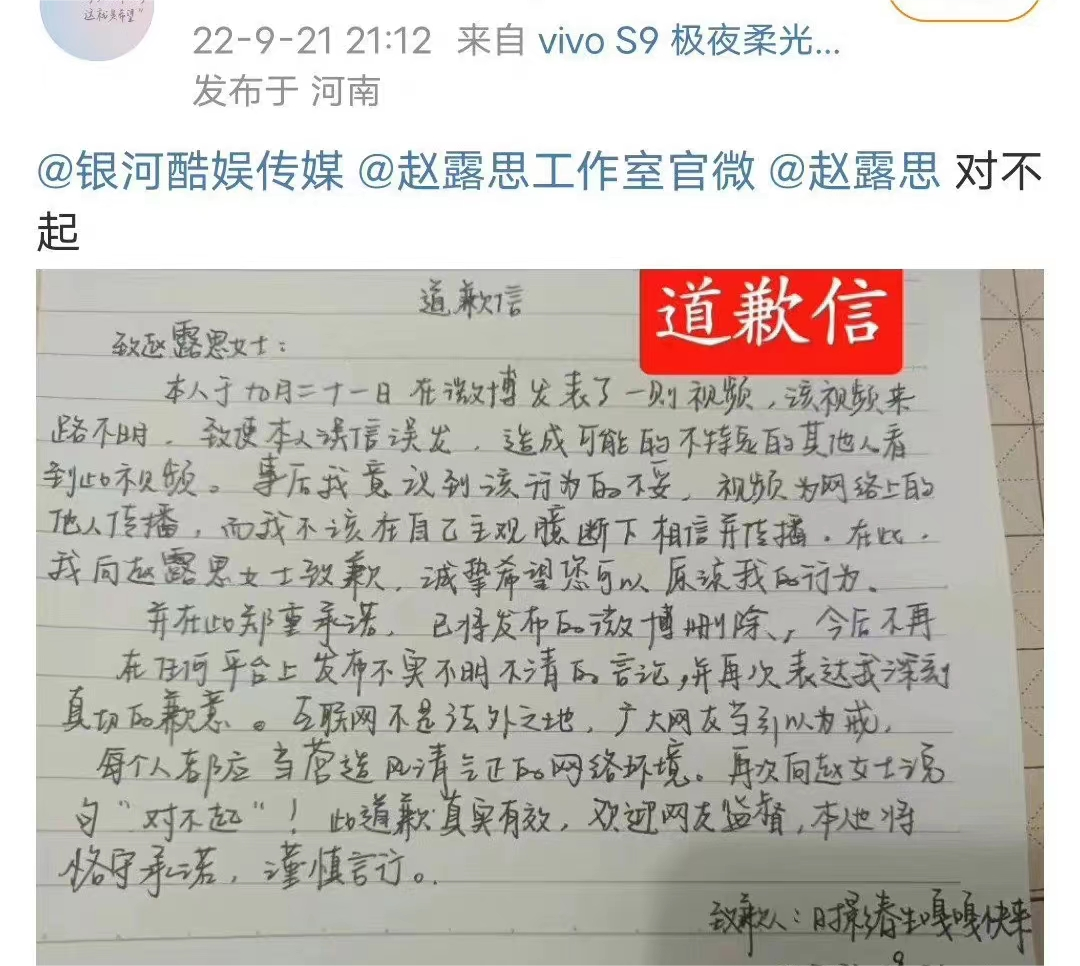 这就是希望”
22-9-21 21:12 来自 vivo S9 极夜柔光...
发布于 河南
@银河酷娱传媒 @赵露思工作室官微 @赵露思 对不
起
道歉信
道歉信
致赵露思女士：
本人于九月二十一日在微博发表了一则视频，该视频来
路不明，致使本人误信误发，造成可能的不特定的其他人看
到此视频。事后我意识到该行为的不妥，视频为网络上的
他人传播，而我不该在自己主观臆断下相信并传播。在此，
我向赵露思女士致歉，诚挚希望您可以原谅我的行为。
并在此郑重承诺，已将发布的微博删除，今后不再
在任何平台上发布不实不明不清的言论，并再次表达我深刻
真切的歉意。互联网不是法外之地，广大网友当引以为戒，
每个人都应当营造风清气正的网络环境。再次向赵女士说
句“对不起”！此道歉真实有效，欢迎网友监督，本人也将
恪守承诺，谨慎言行。
致歉人：春生嘎嘎快来